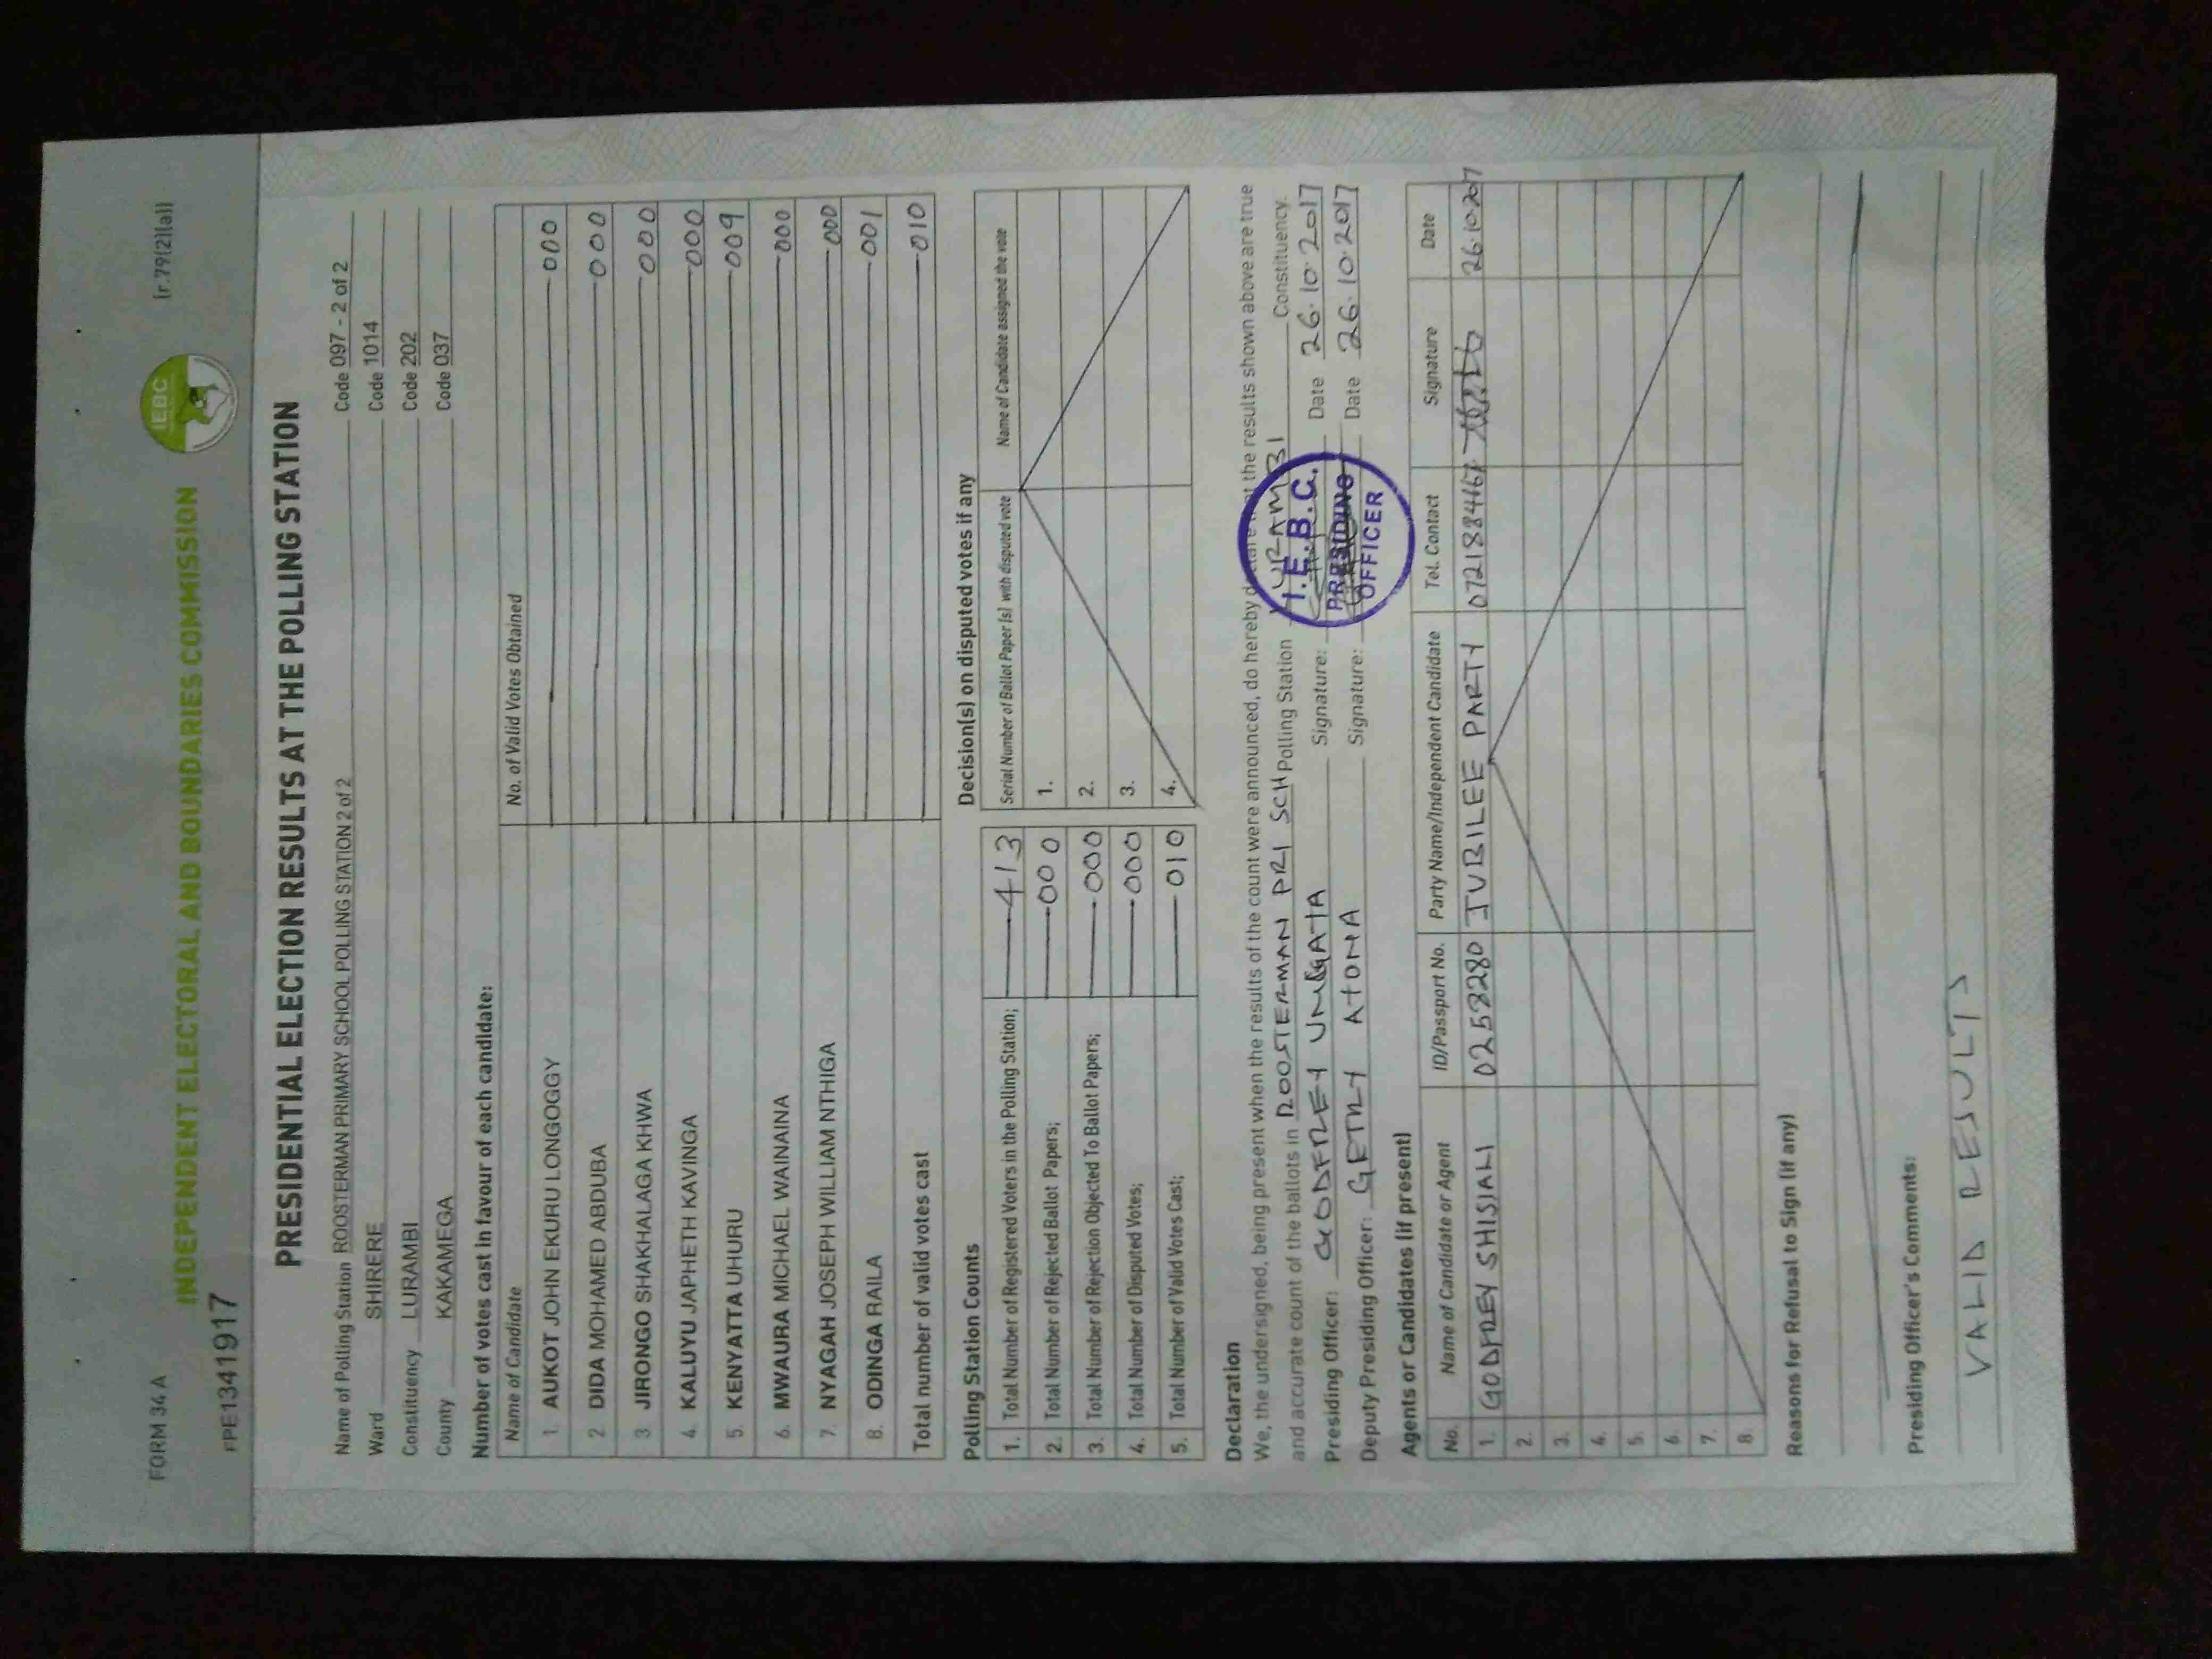 FORM 34 A
(r.79(2)(a))
FPE1341917
IEBC
INDEPENDENT ELECTORAL AND BOUNDARIES COMMISSION
PRESIDENTIAL ELECTION RESULTS AT THE POLLING STATION
Name of Polling Station ROOSTERMAN PRIMARY SCHOOL POLLING STATION 2 of 2 Code 097 - 2 of 2
Ward SHIRERE Code 1014
Constituency LURAMBI Code 202
County KAKAMEGA Code 037
Number of votes cast in favour of each candidate:
Name of Candidate No. of Valid Votes Obtained
1. AUKOT JOHN EKURU LONGOGGY 000
2 DIDA MOHAMED ABDUBA 000
3 JIRONGO SHAKHALAGA KHWA 000
4. KALUYU JAPHETH KAVINGA 000
5. KENYATTA UHURU 009
6. MWAURA MICHAEL WAINAINA 000
7. NYAGAH JOSEPH WILLIAM NTHIGA 000
8. ODINGA RAILA 001
Total number of valid votes cast 010
Polling Station Counts
1. Total Number of Registered Voters in the Polling Station; 413
2. Total Number of Rejected Ballot Papers; 000
3. Total Number of Rejection Objected To Ballot Papers; 000
4. Total Number of Disputed Votes; 000
5. Total Number of Valid Votes Cast; 010
Decision(s) on disputed votes if any
Serial Number of Ballot Paper (s) with disputed vote Name of Candidate assigned the vote
1.
2.
3.
4.
Declaration
We, the undersigned, being present when the results of the count were announced, do hereby declare that the results shown above are true
and accurate count of the ballots in ROOSTERMAN PRI SCH Polling Station LURAMBI Constituency.
Presiding Officer: GODFREY Signature: Date 26.10.2017
Deputy Presiding Officer: GETRY ATONA Signature: Date 26.10.2017
I.E.B.C.
PRESIDING
OFFICER
Agents or Candidates (if present)
No. Name of Candidate or Agent ID/Passport No. Party Name/Independent Candidate Tel. Contact Signature Date
1. GODFREY SHISIALI 0258280 JUBILEE PARTY 0721884167 26.10.2017
2.
3.
4.
5.
6.
7.
8.
Reasons for Refusal to Sign (if any)
Presiding Officer's Comments:
VALID RESULTS